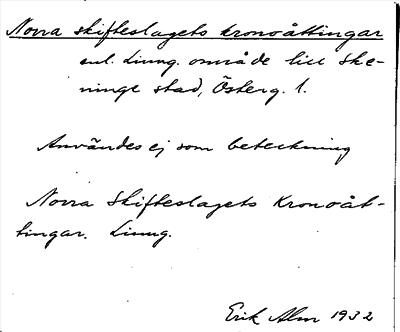 Norra skifteslagets kronoåttingar
enl. Ljung. område till Ske-
ninge stad, Österg. l.
Användes ej som beteckning
Norra Skifteslagets Kronoåt-
tingar. Ljung.
Erik Alm 1932